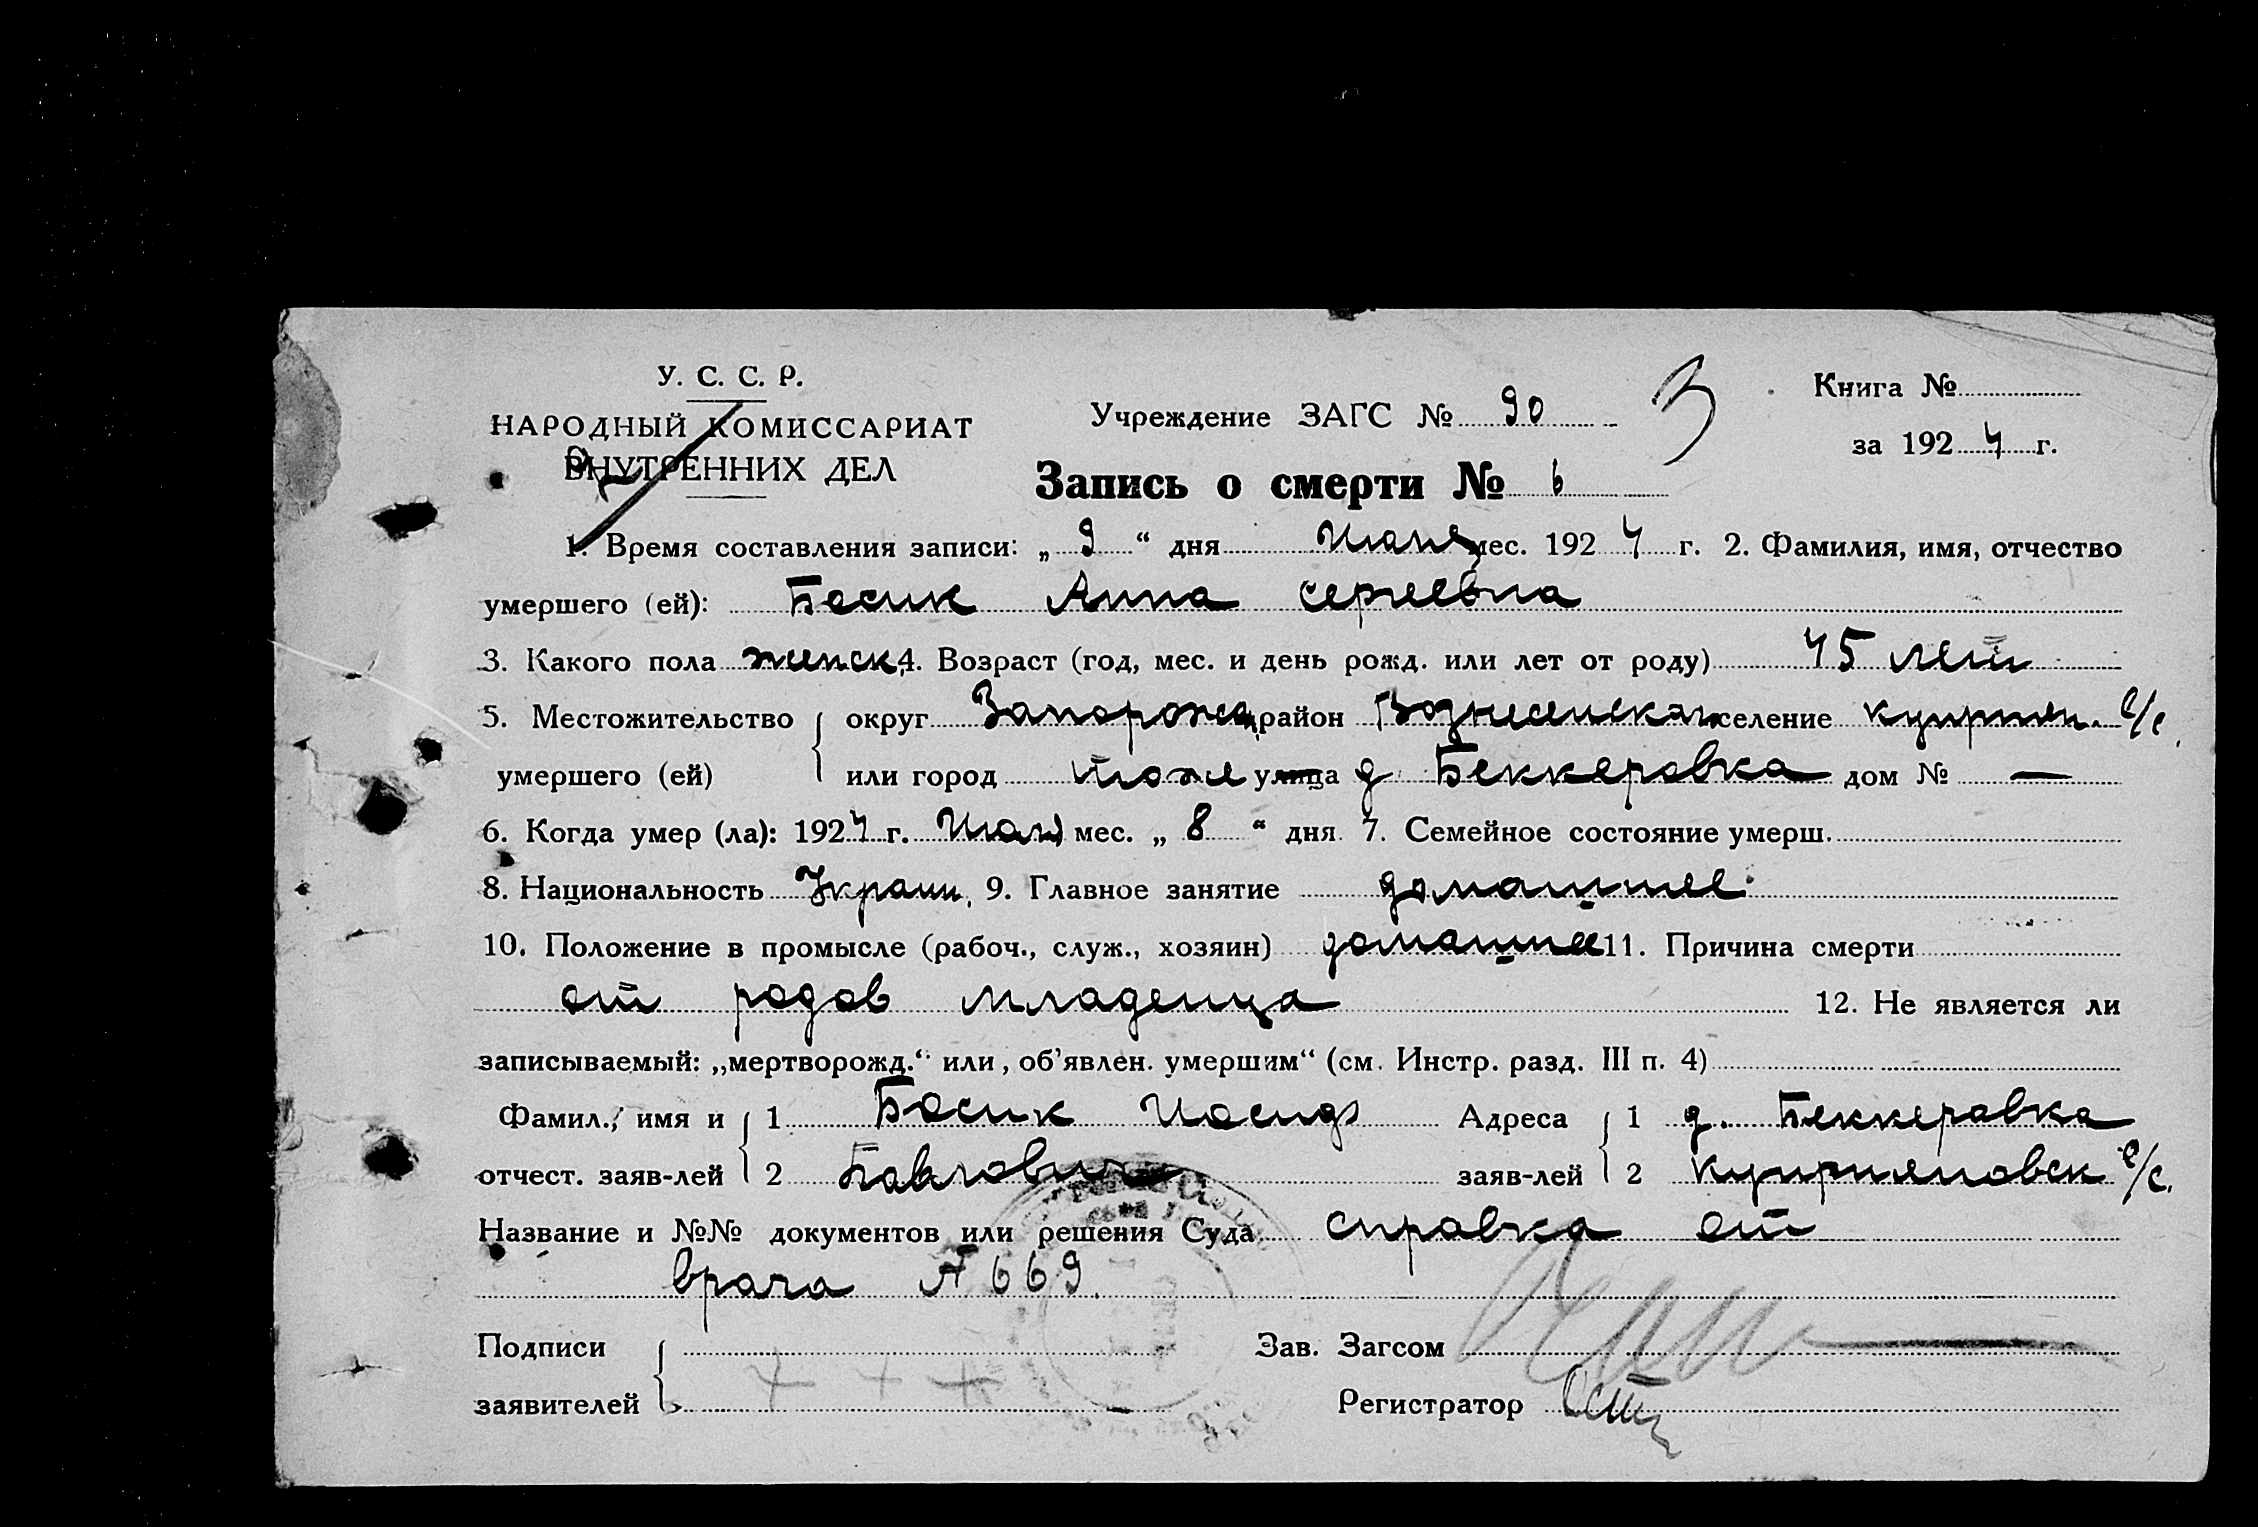 У. С. С. Р.
НАРОДНЫЙ КОМИССАРИАТ
ВНУТРЕННИХ ДЕЛ
Учреждение ЗАГС № 90
З
Книга №
за 1924 г.
Запись о смерти № 6
1. Время составления записи: „ 9 “ дня Июня мес. 1924 г. 2. Фамилия, имя, отчество
умершего (ей): Босик Анна Сергеевна
3. Какого пола женск. 4. Возраст (год, мес. и день рожд. или лет от роду) 45 лет
5. Местожительство округ Запорожск. район Вознесенскаг селение Куприян. с/с.
умершего (ей) или город тоже улица д Беккеровка дом № —
6. Когда умер (ла): 1924 г. Июня мес. „ 8 “ дня 7. Семейное состояние умерш.
8. Национальность Украин. 9. Главное занятие домашнее
10. Положение в промысле (рабоч., служ., хозяин) домашнее 11. Причина смерти
от родов младенца 12. Не является ли
записываемый: „мертворожд.“ или, об'явлен. умершим“ (см. Инстр. разд. III п. 4)
Фамил., имя и 1 Босик Иосиф Адреса 1 д. Беккеровка
отчест. заяв-лей 2 Павлович заяв-лей 2 Куприяновск с/с.
Название и №№ документов или решения Суда справка от
врача № 669.
Подписи Зав. Загсом
заявителей + + + Регистратор